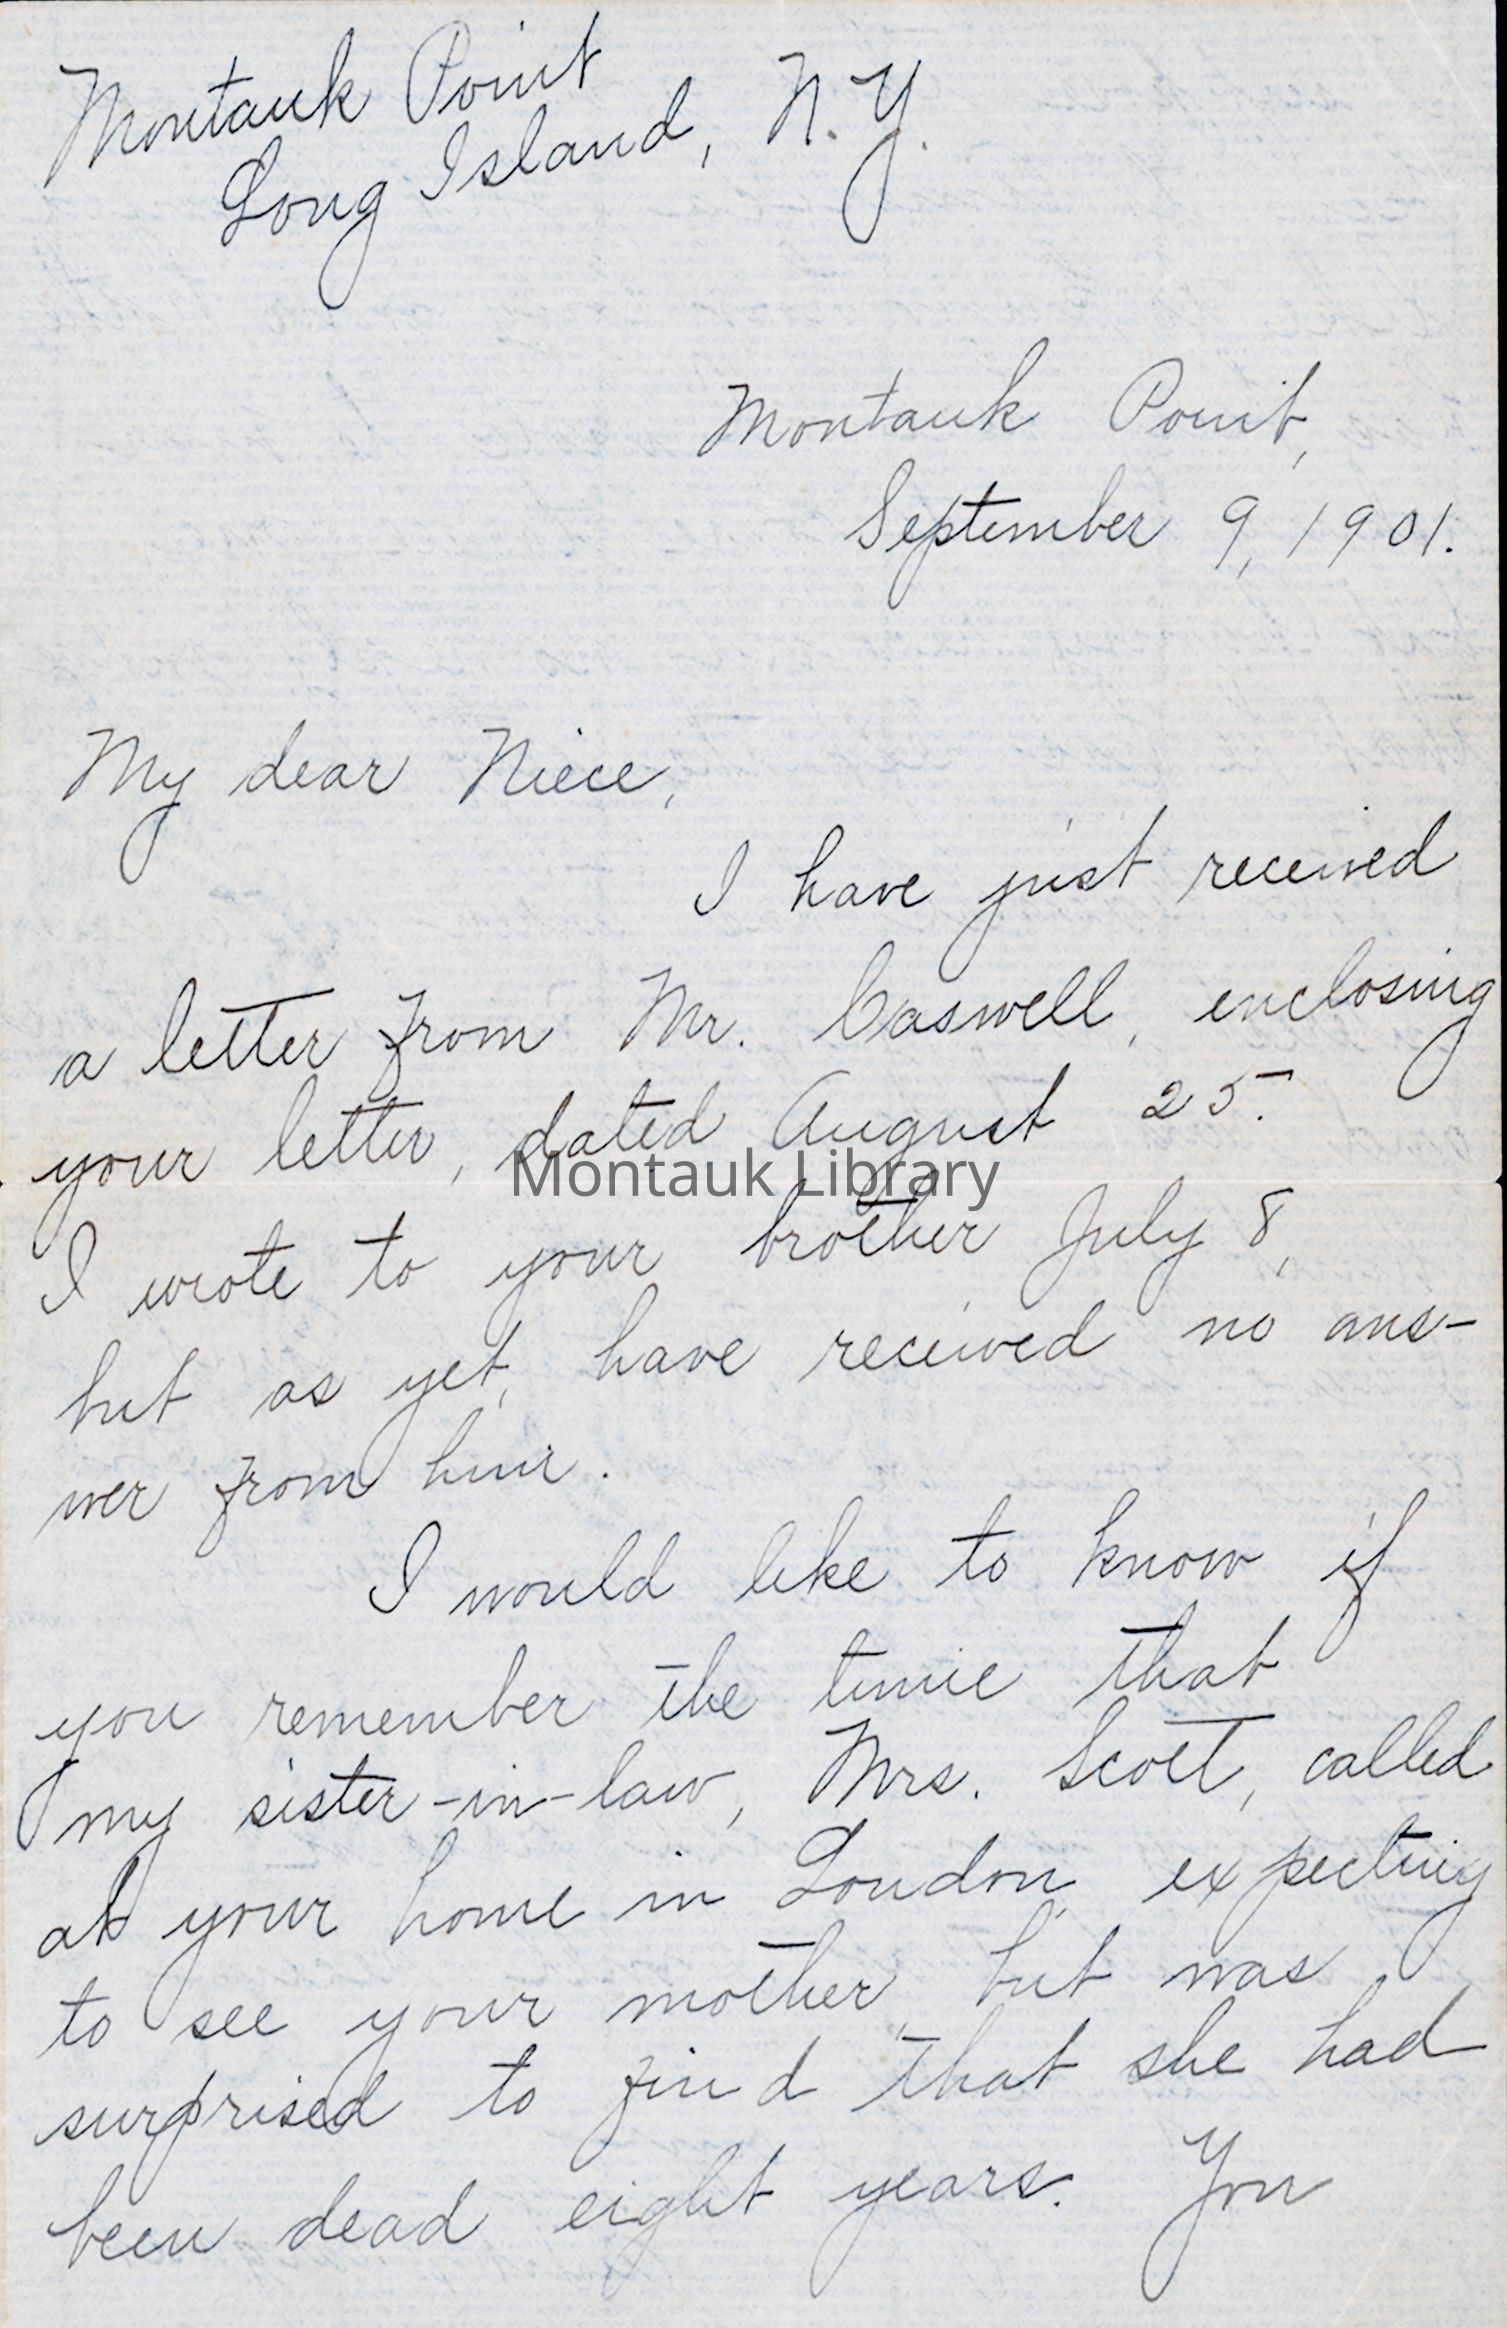 Montauk Point
Long Island, N.Y.
Montauk Point,
September 9, 1901.
My dear Niece,
I have just received
a letter from Mr. Caswell, enclosing
your letter, dated August 25.
Montauk Library
I wrote to your brother July 8,
but as yet, have received no ans-
wer from him.
I would like to know if
you remember the time that
my sister-in-law, Mrs. Scott, called
at your home in London, expecting
to see your mother, but was
surprised to find that she had
been dead eight years. You